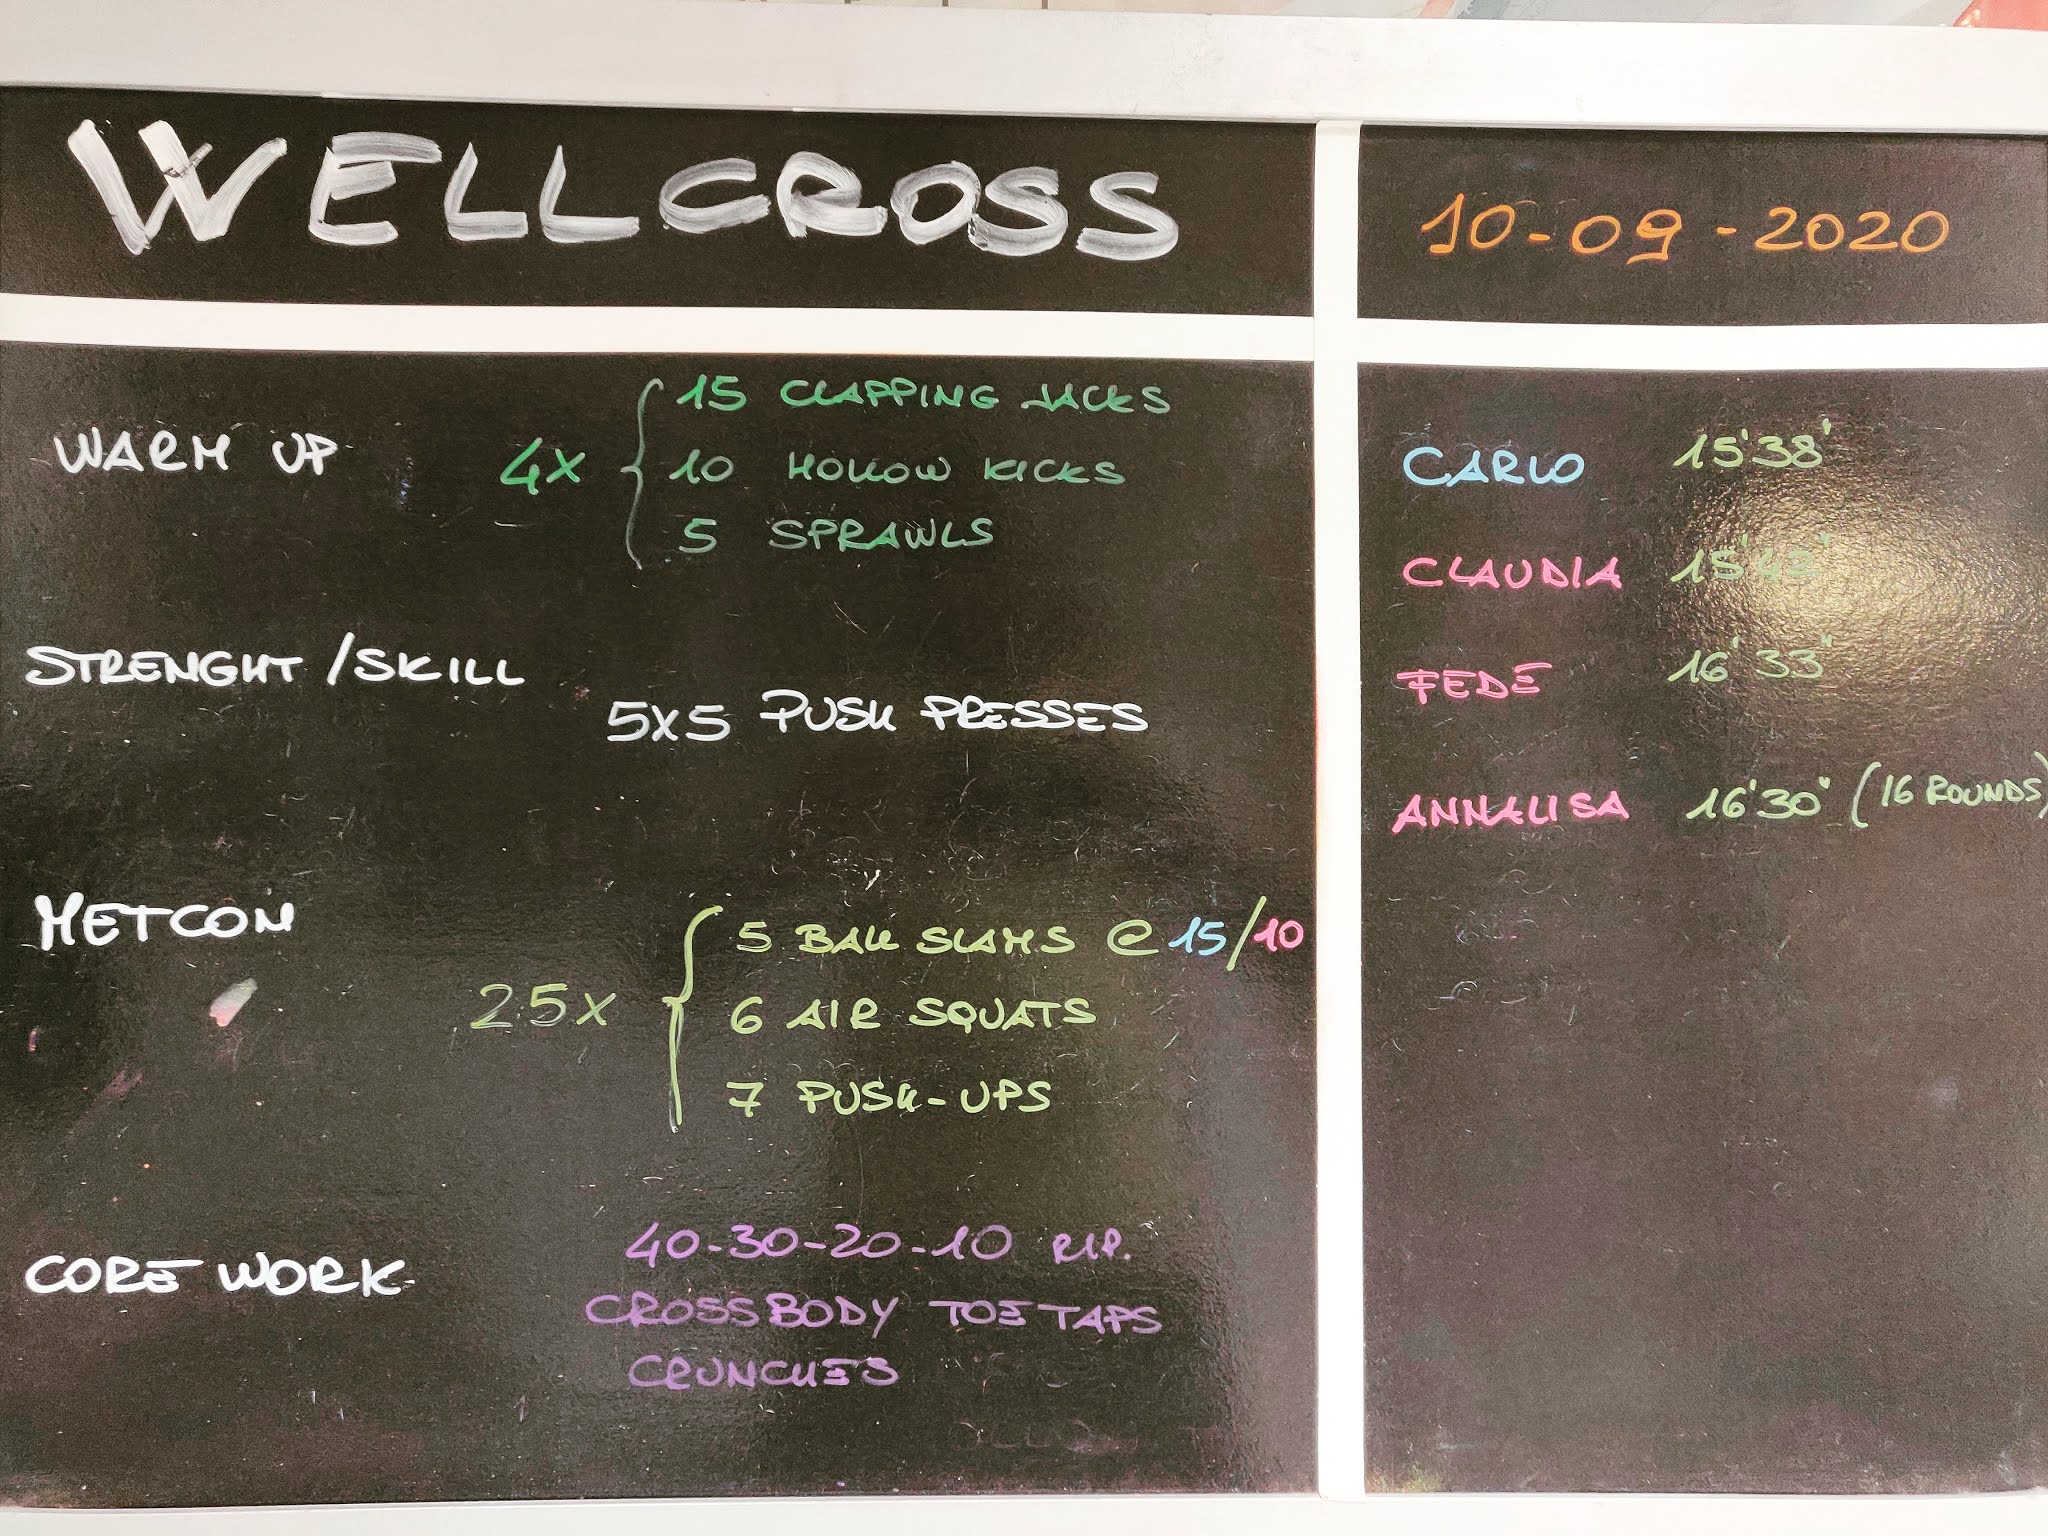 WELLCROSS
10-09-2020
WARM UP
4X
15 CLAPPING JACKS
10 HOLLOW KICKS
5 SPRAWLS
STRENGHT/SKILL
5X5 PUSH PRESSES
METCON
25X
5 BALL SLAMS @ 15/10
6 AIR SQUATS
7 PUSH-UPS
CORE WORK
40-30-20-10 RIP.
CROSSBODY TOE TAPS
CRUNCHES
CARLO 15'38'
CLAUDIA 15'42'
FEDE 16'33"
ANNALISA 16'30" (16 ROUNDS)